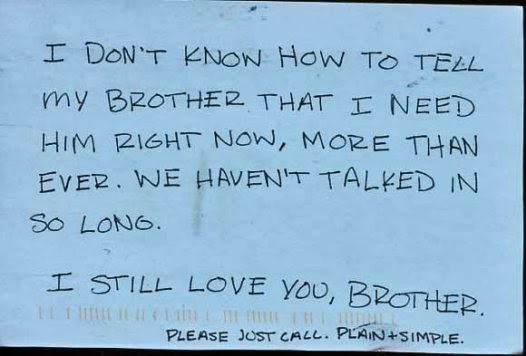 I DON'T KNOW HOW TO TELL
MY BROTHER THAT I NEED
HIM RIGHT NOW, MORE THAN
EVER. WE HAVEN'T TALKED IN
SO LONG.
I STILL LOVE YOU, BROTHER.
PLEASE JUST CALL. PLAIN+SIMPLE.